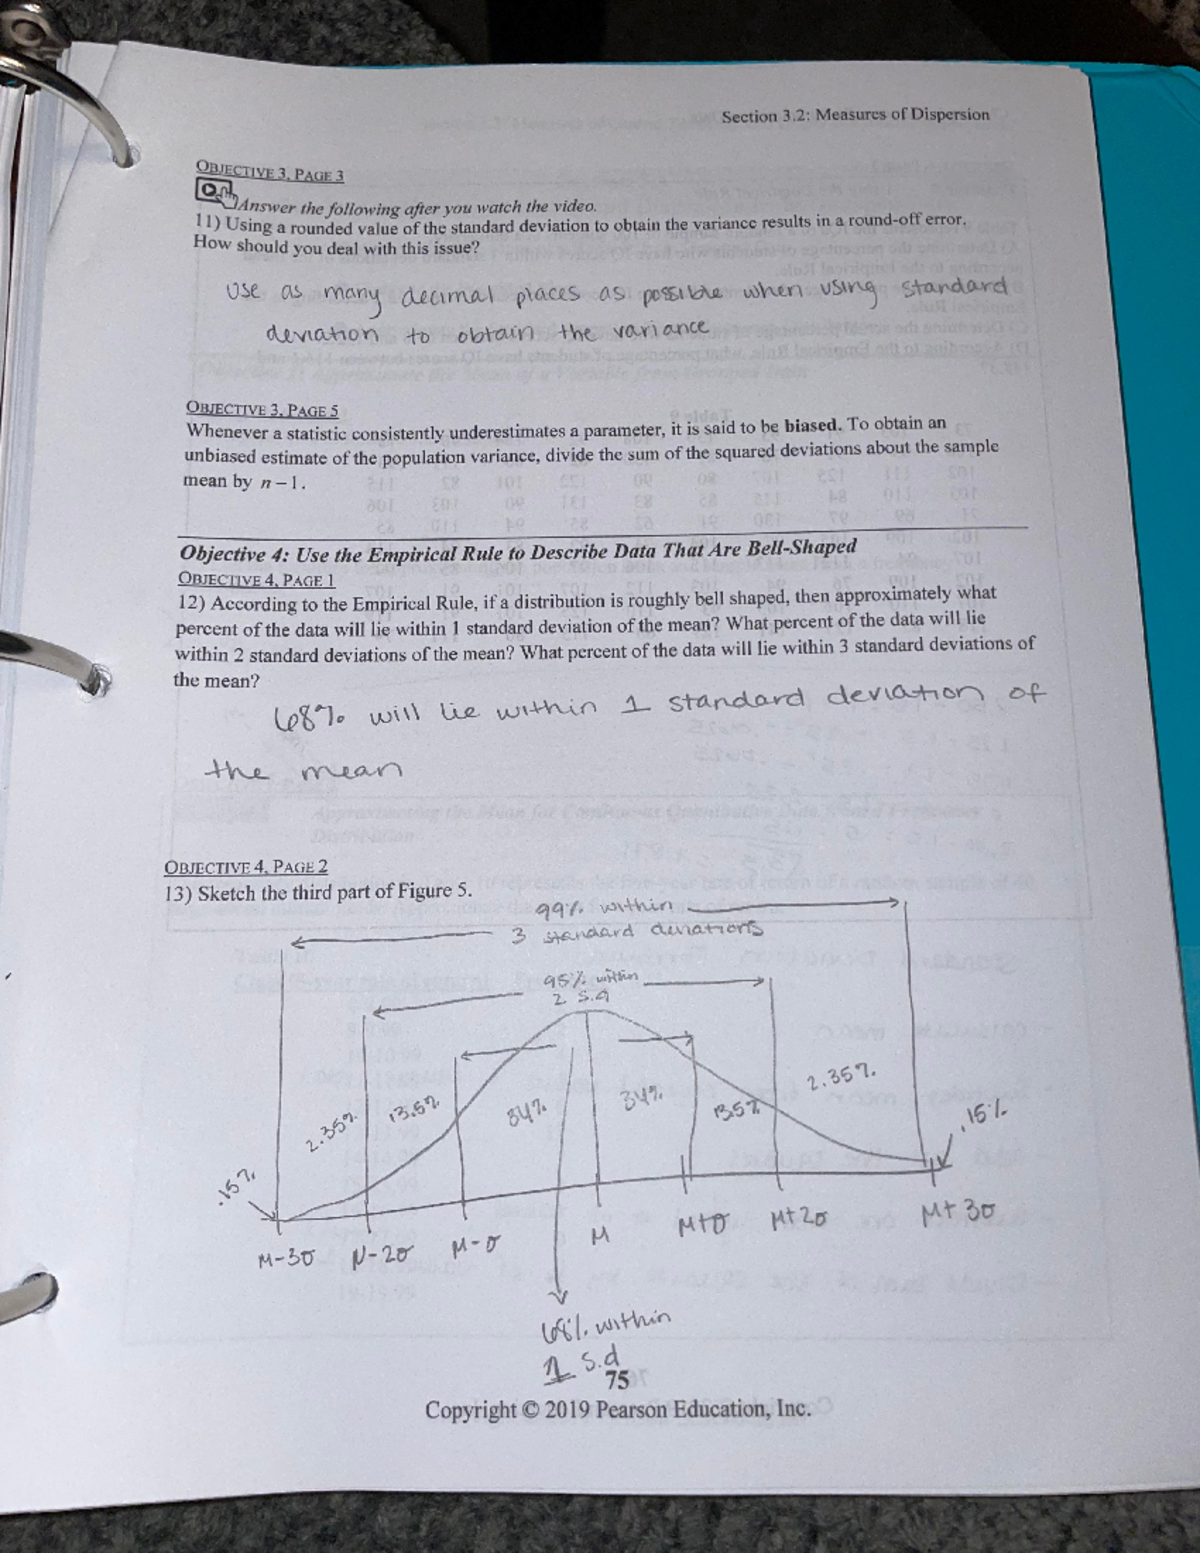 Section 3.2: Measures of Dispersion
OBJECTIVE 3, PAGE 3
Answer the following after you watch the video.
11) Using a rounded value of the standard deviation to obtain the variance results in a round-off error.
How should you deal with this issue?
Use as many decimal places as possible when using standard
deviation to obtain the variance
OBJECTIVE 3, PAGE 5
Whenever a statistic consistently underestimates a parameter, it is said to be biased. To obtain an
unbiased estimate of the population variance, divide the sum of the squared deviations about the sample
mean by n – 1.
Objective 4: Use the Empirical Rule to Describe Data That Are Bell-Shaped
OBJECTIVE 4, PAGE 1
12) According to the Empirical Rule, if a distribution is roughly bell shaped, then approximately what
percent of the data will lie within 1 standard deviation of the mean? What percent of the data will lie
within 2 standard deviations of the mean? What percent of the data will lie within 3 standard deviations of
the mean?
68% will lie within 1 standard deviation of
the mean
OBJECTIVE 4, PAGE 2
13) Sketch the third part of Figure 5.
99% within
3 standard deviations
95% within
2 s.d
.15% 2.35% 13.5% 34% 34% 13.5% 2.35% .15%
M-3σ M-2σ M-σ M M+σ M+2σ M+3σ
68% within
1 s.d
75
Copyright © 2019 Pearson Education, Inc.